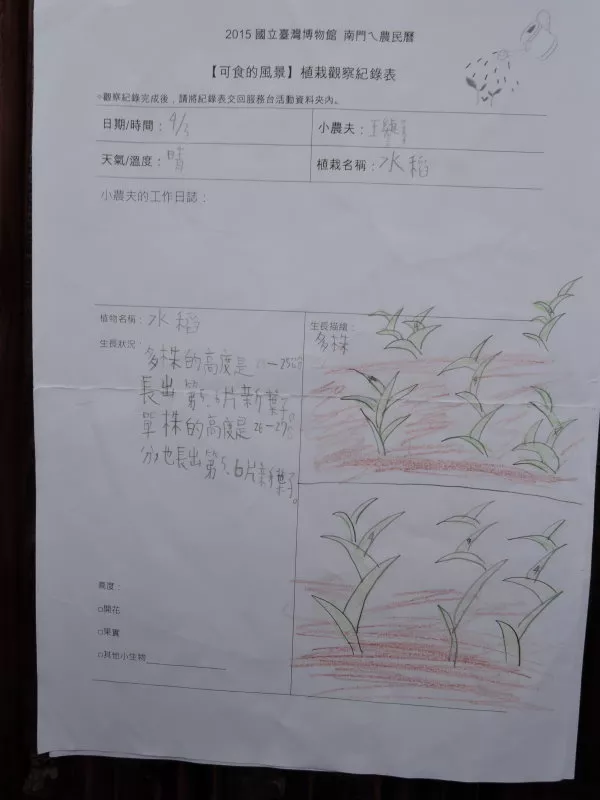 2015 國立臺灣博物館 南門ㄟ農民曆
【可食的風景】植栽觀察紀錄表
※觀察紀錄完成後，請將紀錄表交回服務台活動資料夾內。
日期/時間：4/3
小農夫：王
天氣/溫度：晴
植栽名稱：水稻
小農夫的工作日誌：
植物名稱：水稻
生長描繪：
多株
生長狀況：
多株的高度是 —25公分
長出第5、6片新葉子。
單株的高度是26—29公
分,也長出第5、6片新葉子。
高度：
□開花
□果實
□其他小生物